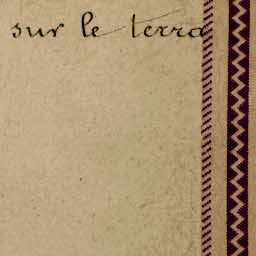 sur le terra